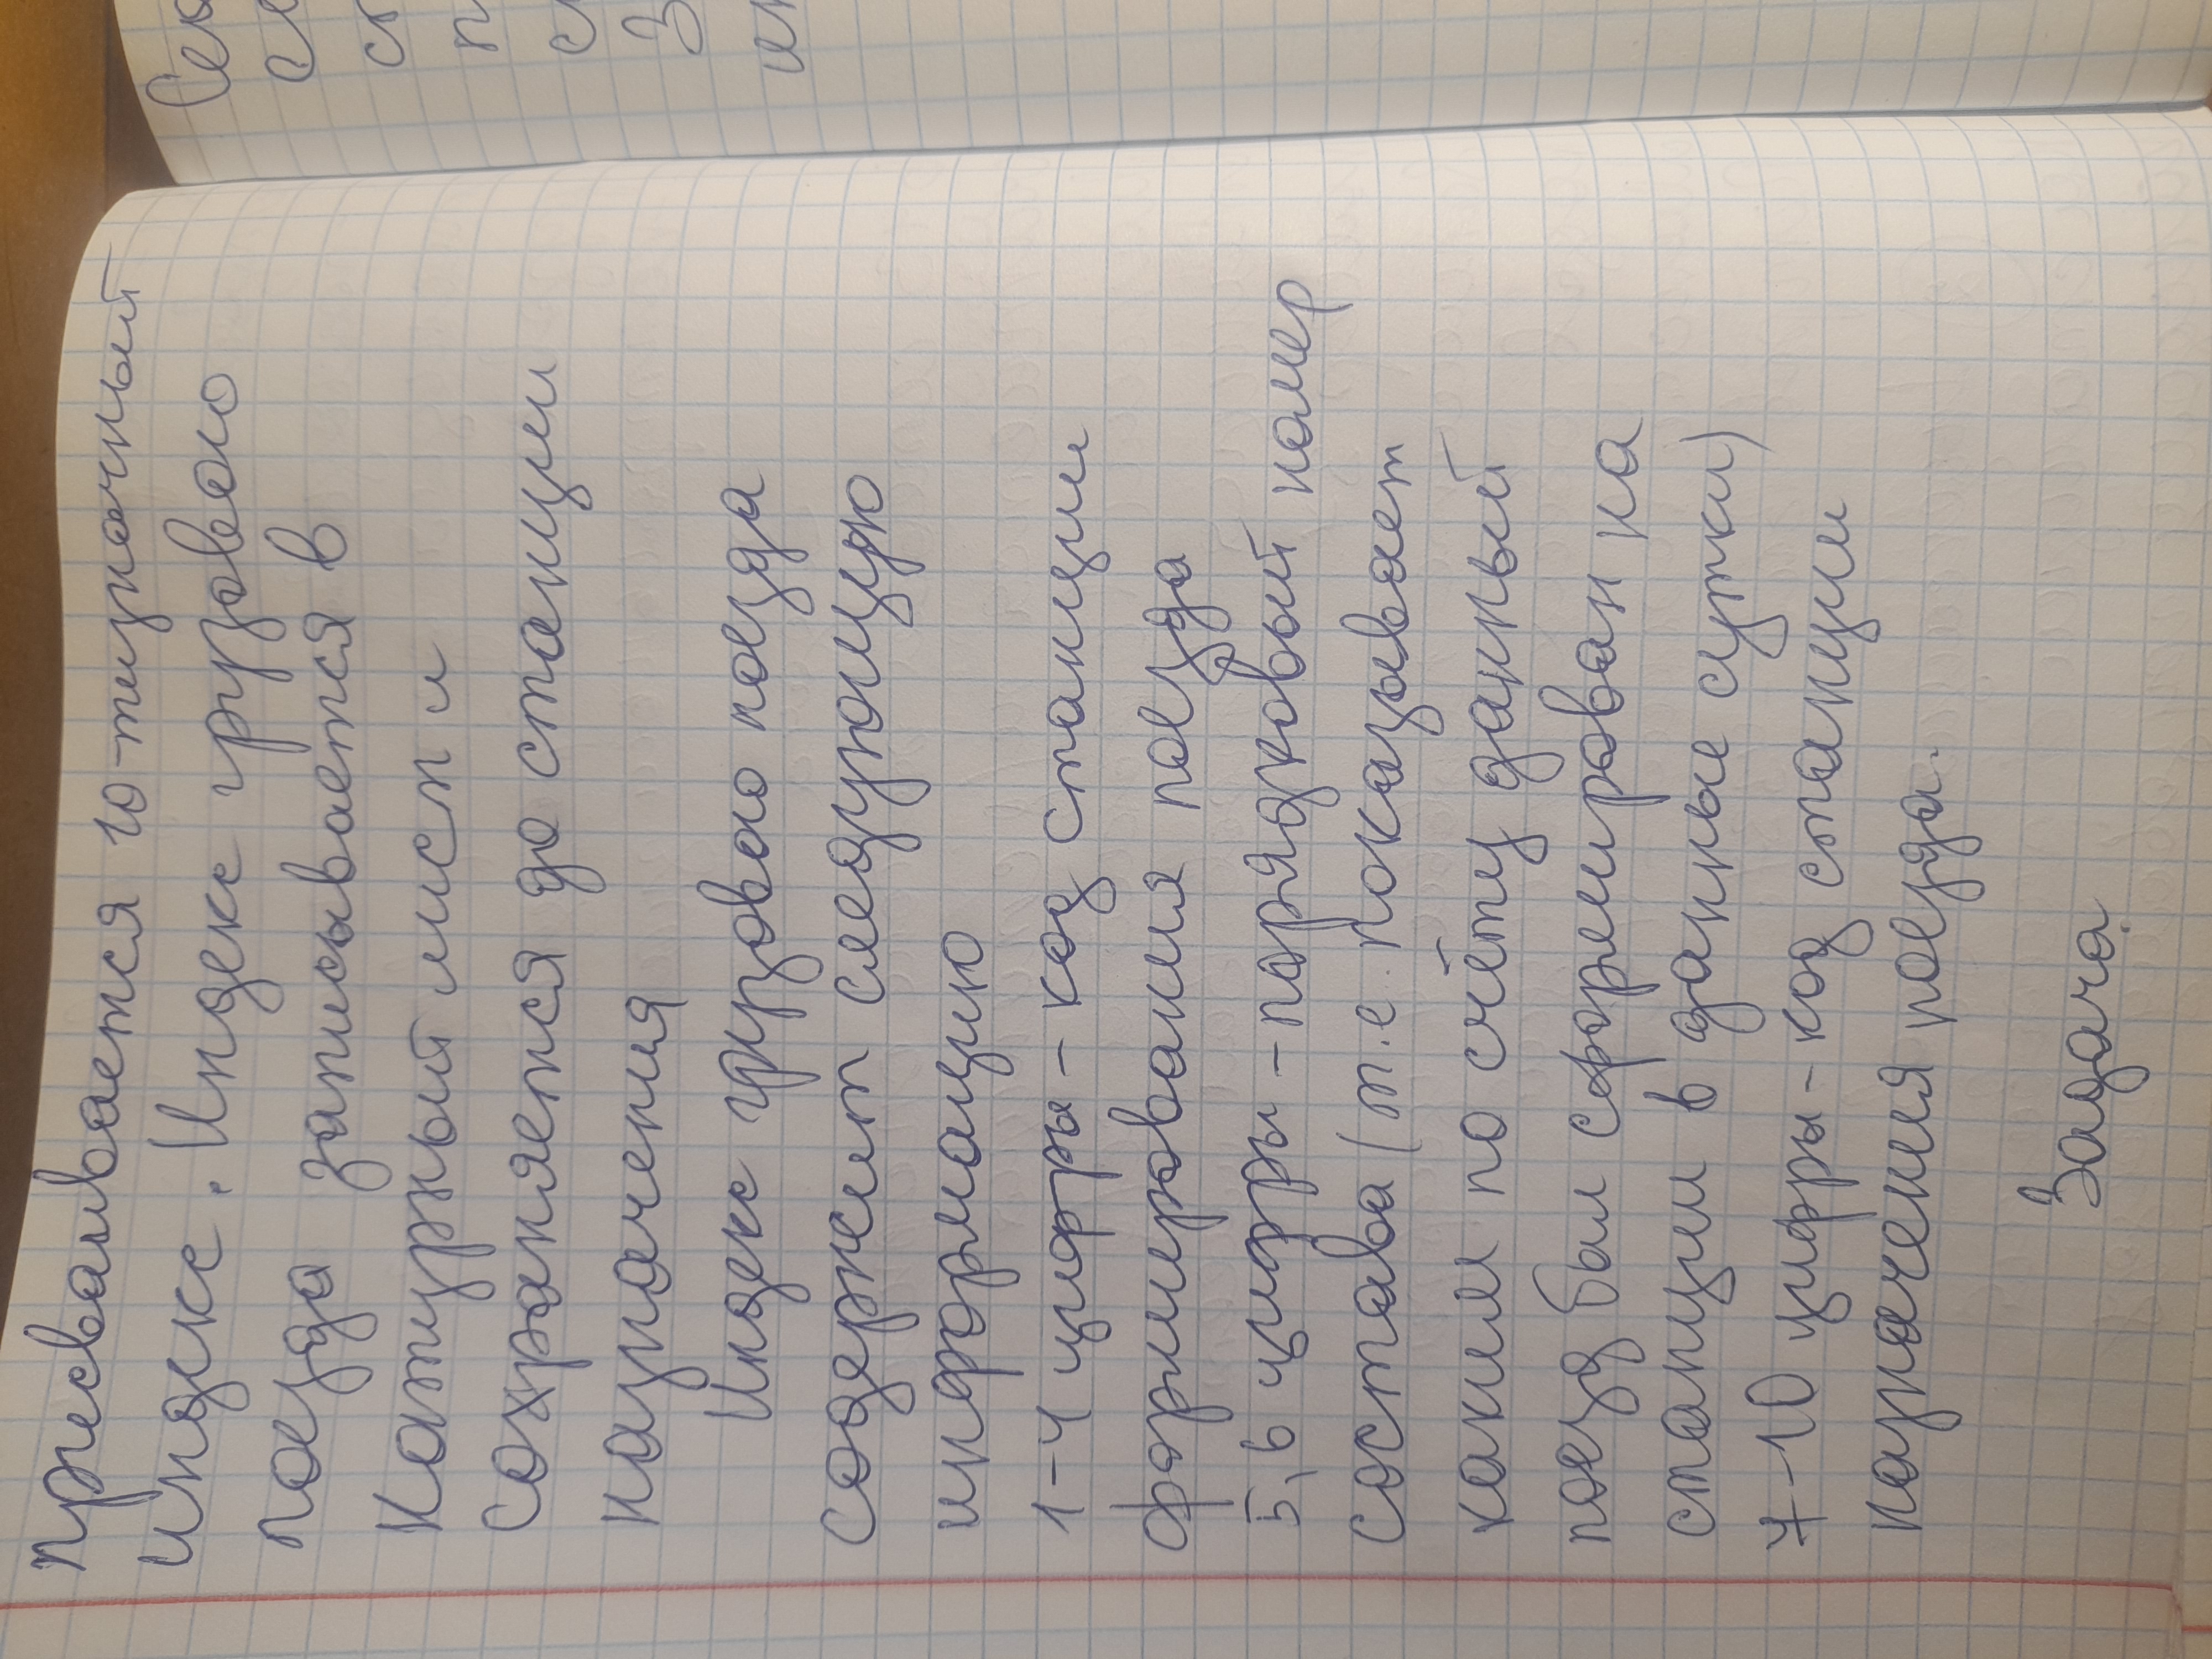 присваивается 10-тизначный
индекс. Индекс грузового
поезда записывается в
Натурный лист и
сохраняется до станции
назначения
Индекс грузового поезда
содержит следующую
информацию
1-4 цифры - код станции
формирования поезда
5,6 цифры - порядковый номер
состава (т.е. показывает
каким по счёту данный
поезд был сформирован на
станции в данные сутки)
7-10 цифры - код станции
назначения поезда.
Задача.